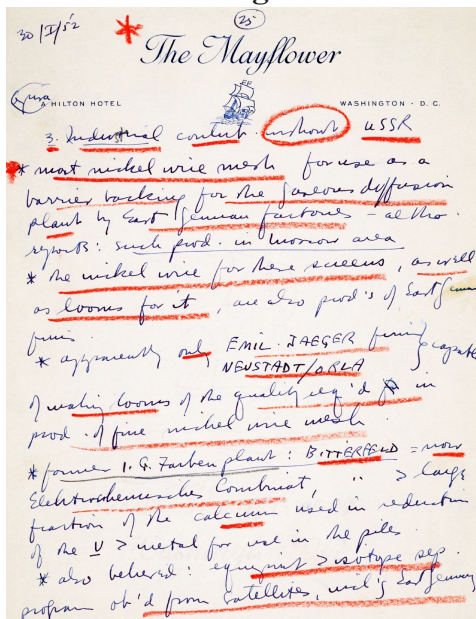 25
30/I/52
The Mayflower
A HILTON HOTEL
WASHINGTON · D. C.
3. Industrial contrib. without USSR
* most nickel wire mesh for use as a
barrier backing for the gaseous diffusion
plant by East German factories – altho
reports: such prod. in Moscow area
* the nickel wire for these screens, as well
as looms for it, are also prod's of East German
firms
* apparently only EMIL JAEGER firm,
NEUSTADT/ORLA } capable
of making looms of the quality req'd in
prod. of fine nickel wire mesh
* former I. G. Farben plant: BITTERFELD = now
Elektrochemisches Combinat, " > large
fraction of the calcium used in reduction
of the U > metal for use in the piles
* also believed: equipmt > isotope sep.
program ob'd from satellites, incl'g East Germany